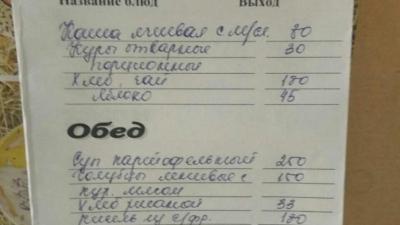 Название блюд Выход
Каша ячневая с м/сл. 80
Куры отварные 30
порционные
Хлеб, чай 180
Яблоко 95
Обед
Суп картофельный 250
Голубцы ленивые с 150
кур. мясом
Хлеб ржаной 33
кисель из с/фр. 180